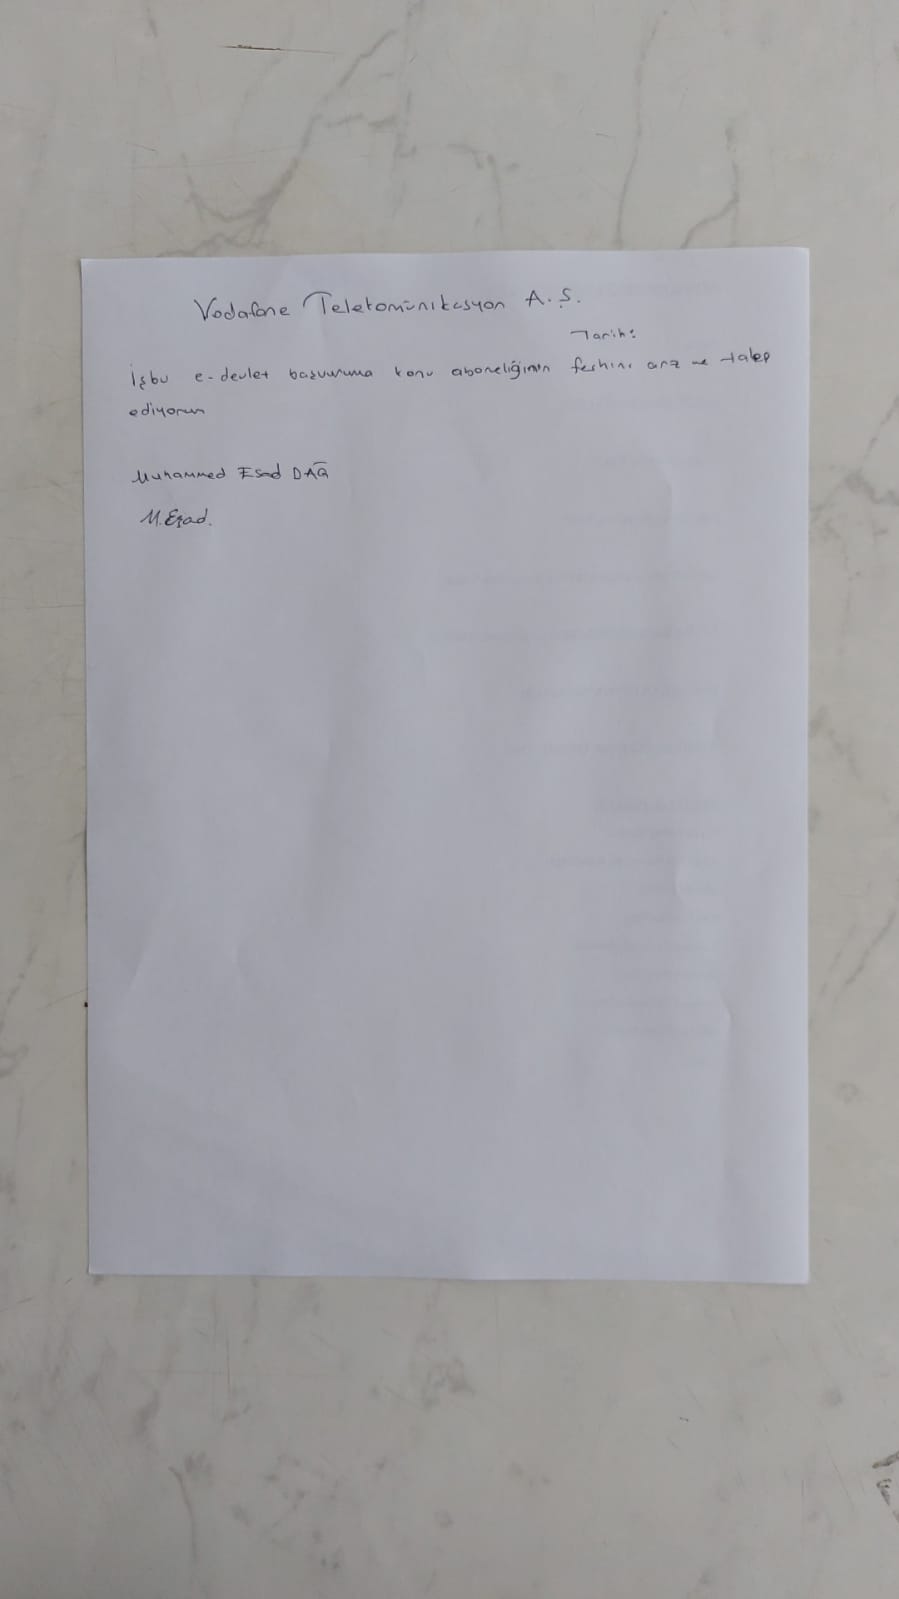 Vodafone Telekomünikasyon A.Ş.
Tarih:
İşbu e-devlet başvuruma konu aboneliğimin feshini arz ve talep
ediyorum
Muhammed Esad DAĞ
M.Esad.